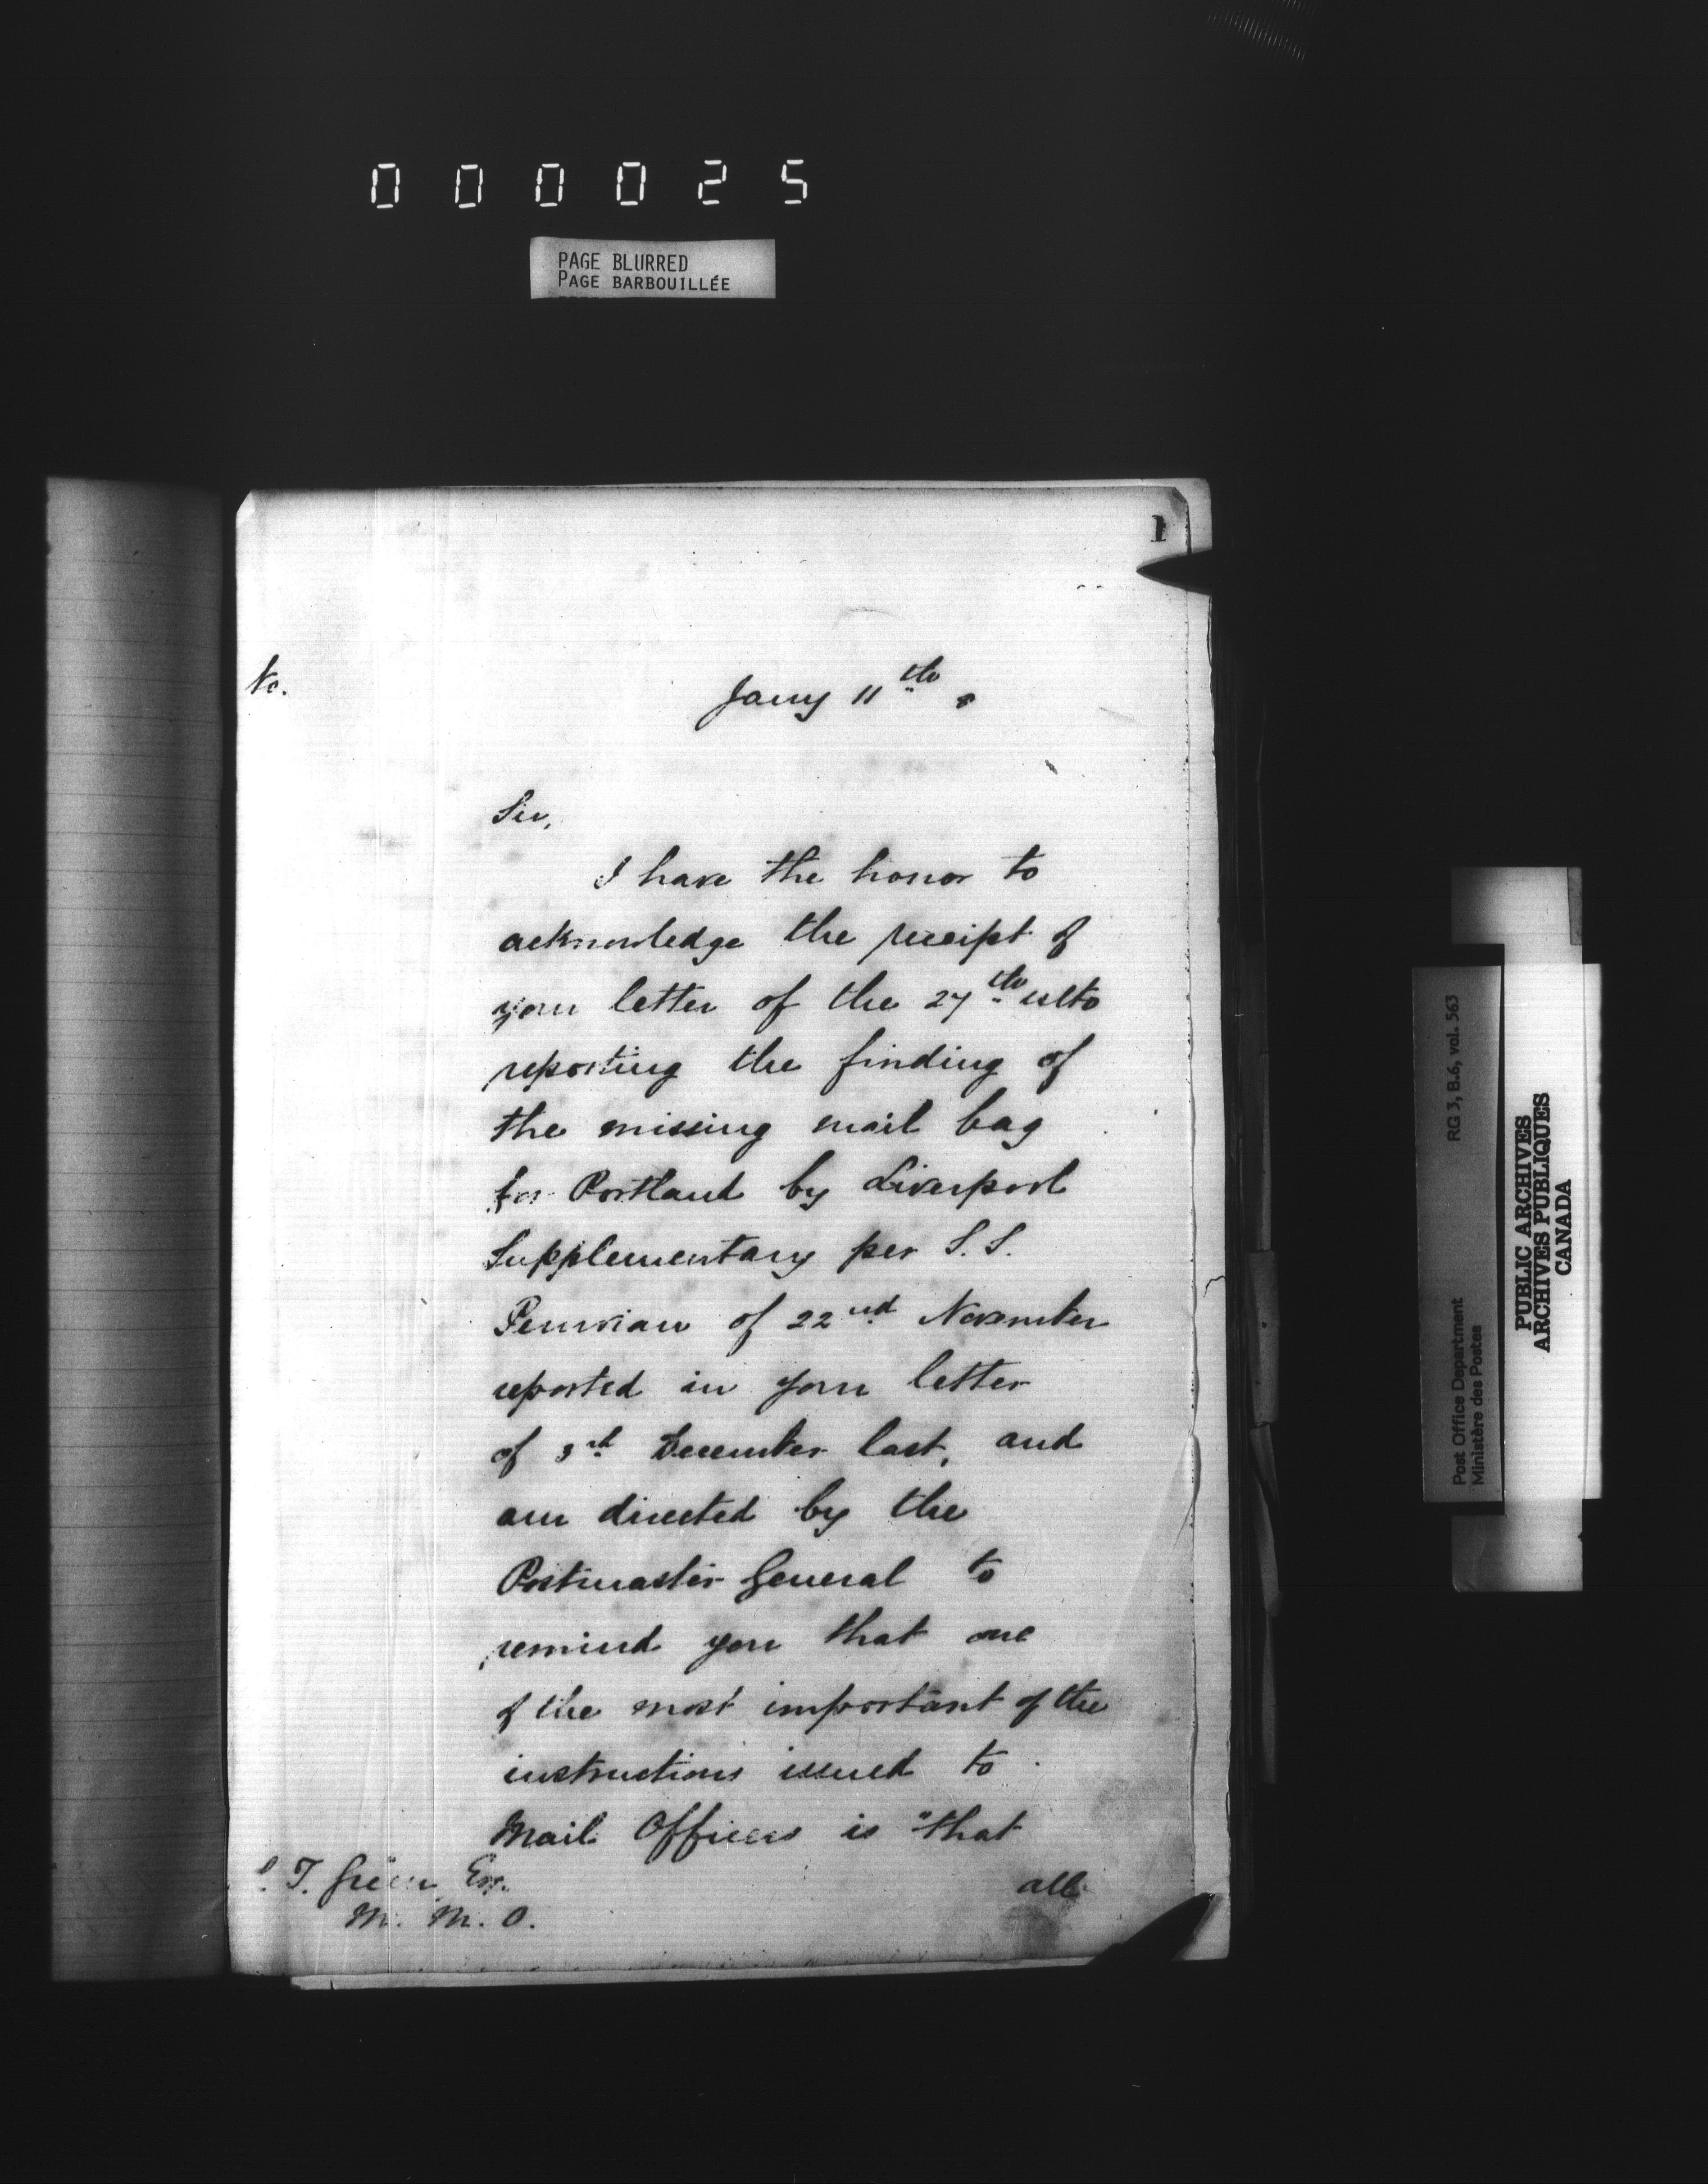 000025
PAGE BLURRED
PAGE BARBOUILLÉE
1
No.
Jany 11th
Sir,
I have the honor to
acknowledge the receipt of
your letter of the 27th ulto
reporting the finding of
the missing mail bag
for Portland by Liverpool
Supplementary per S. S.
Peruvian of 22nd November
reported in your letter
of 3rd December last, and
am directed by the
Postmaster General to
remind you that one
of the most important of the
instructions issued to
Mail Officers is "that
all
T. Green Esq.
M. M. O.
Post Office Department RG 3, B.6, vol. 563
Ministère des Postes
PUBLIC ARCHIVES
ARCHIVES PUBLIQUES
CANADA